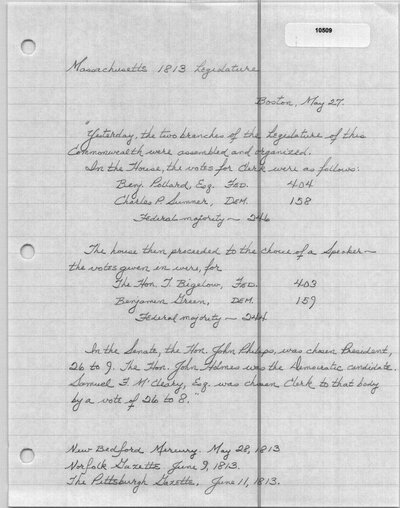 10509
Massachusetts 1813 Legislature
Boston, May 27.
"Yesterday, the two branches of the Legislature of this
Commonwealth were assembled and organized.
In the House, the votes for Clerk were as follows:
Benj. Pollard, Esq. FED. 404
Charles P. Sumner, DEM. 158
Federal majority — 246
The house then proceeded to the choice of a Speaker —
the votes given in were, for
The Hon. T. Bigelow, FED. 403
Benjamin Green, DEM. 159
Federal majority — 244
In the Senate, the Hon. John Phillips, was chosen President,
26 to 9. The Hon. John Holmes was the Democratic candidate.
Samuel F. McCleary, Esq. was chosen Clerk to that body
by a vote of 26 to 8."
New Bedford Mercury. May 28, 1813
Norfolk Gazette June 9, 1813.
The Pittsburgh Gazette, June 11, 1813.